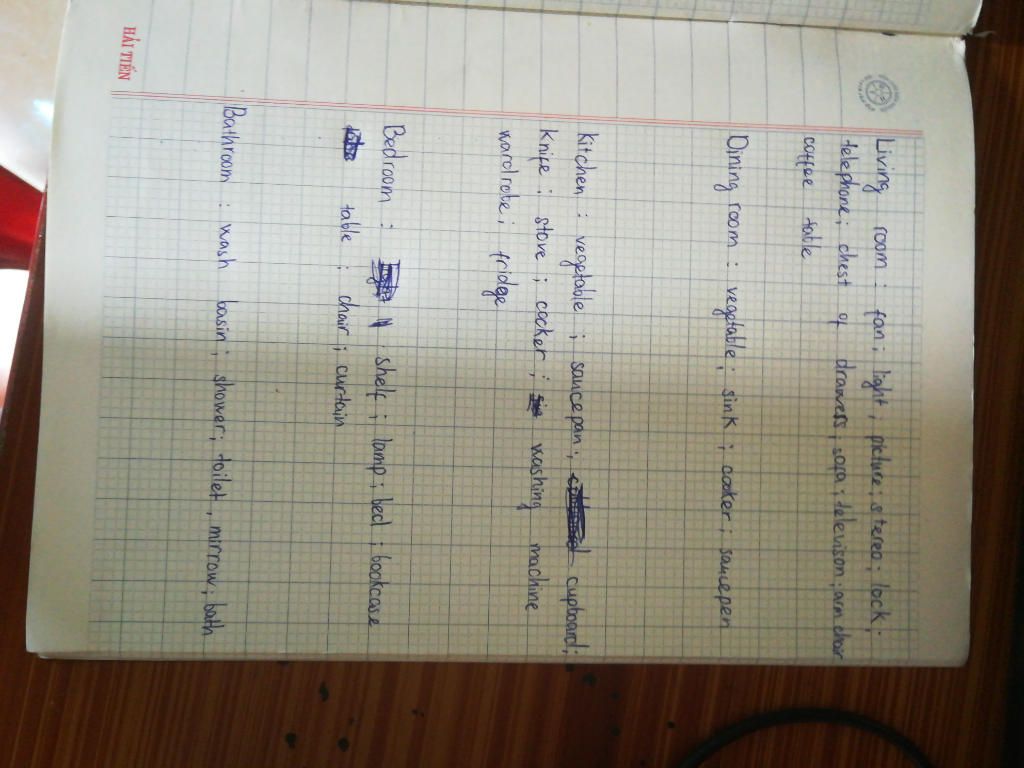 HẢI TIẾN
Living room : fan ; light , picture ; stereo ; lock ;
telephone ; chest of drawers ; sofa ; televison ; arm chair
coffee table
Dining room : vegetable ; sink ; cooker ; saucepen
Kitchen : vegetable ; saucepan ; cupboard ;
Knife ; stove ; cocker ; washing machine
wardrobe ; fridge
Bedroom : ; shelf ; lamp ; bed ; bookcase
table ; chair ; curtain
Bathroom : wash basin ; shower ; toilet , mirrow ; bath